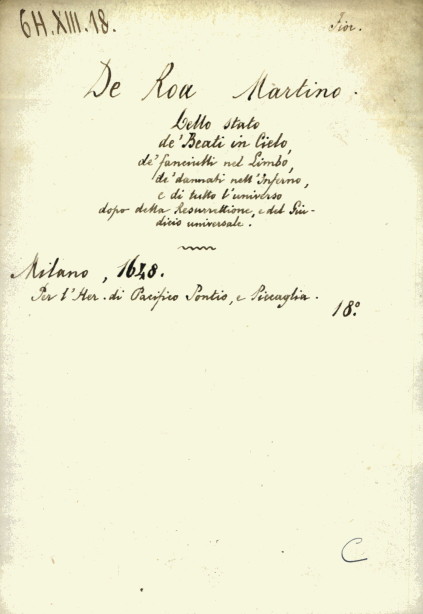 6 H. XIII. 18.
Fior.
De Roa Martino.
Dello stato
de' Beati in Cielo,
de' fanciulli nel Limbo,
de' dannati nell' Inferno,
e di tutto l'universo
dopo detta Resurrettione, e del Giu-
dicio universale.
Milano, 1648.
Per l'Her. di Pacifico Pontio, e Piccaglia.
18.°
C